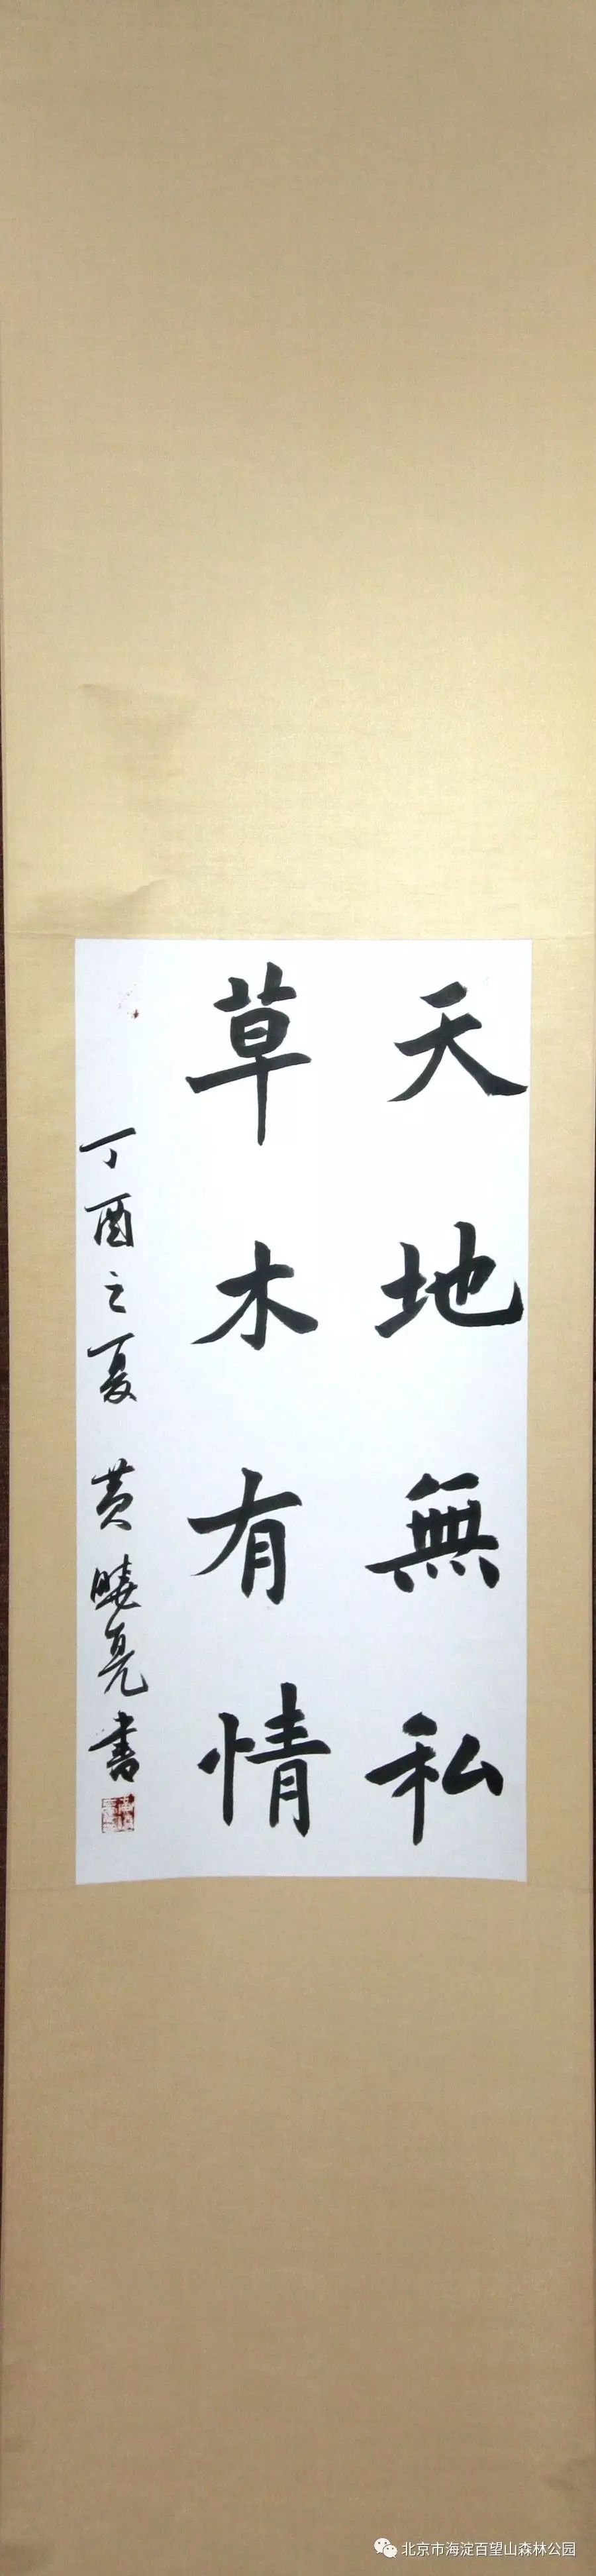 天地無私
草木有情
丁酉之夏 黄曉亮書
北京市海淀百望山森林公园